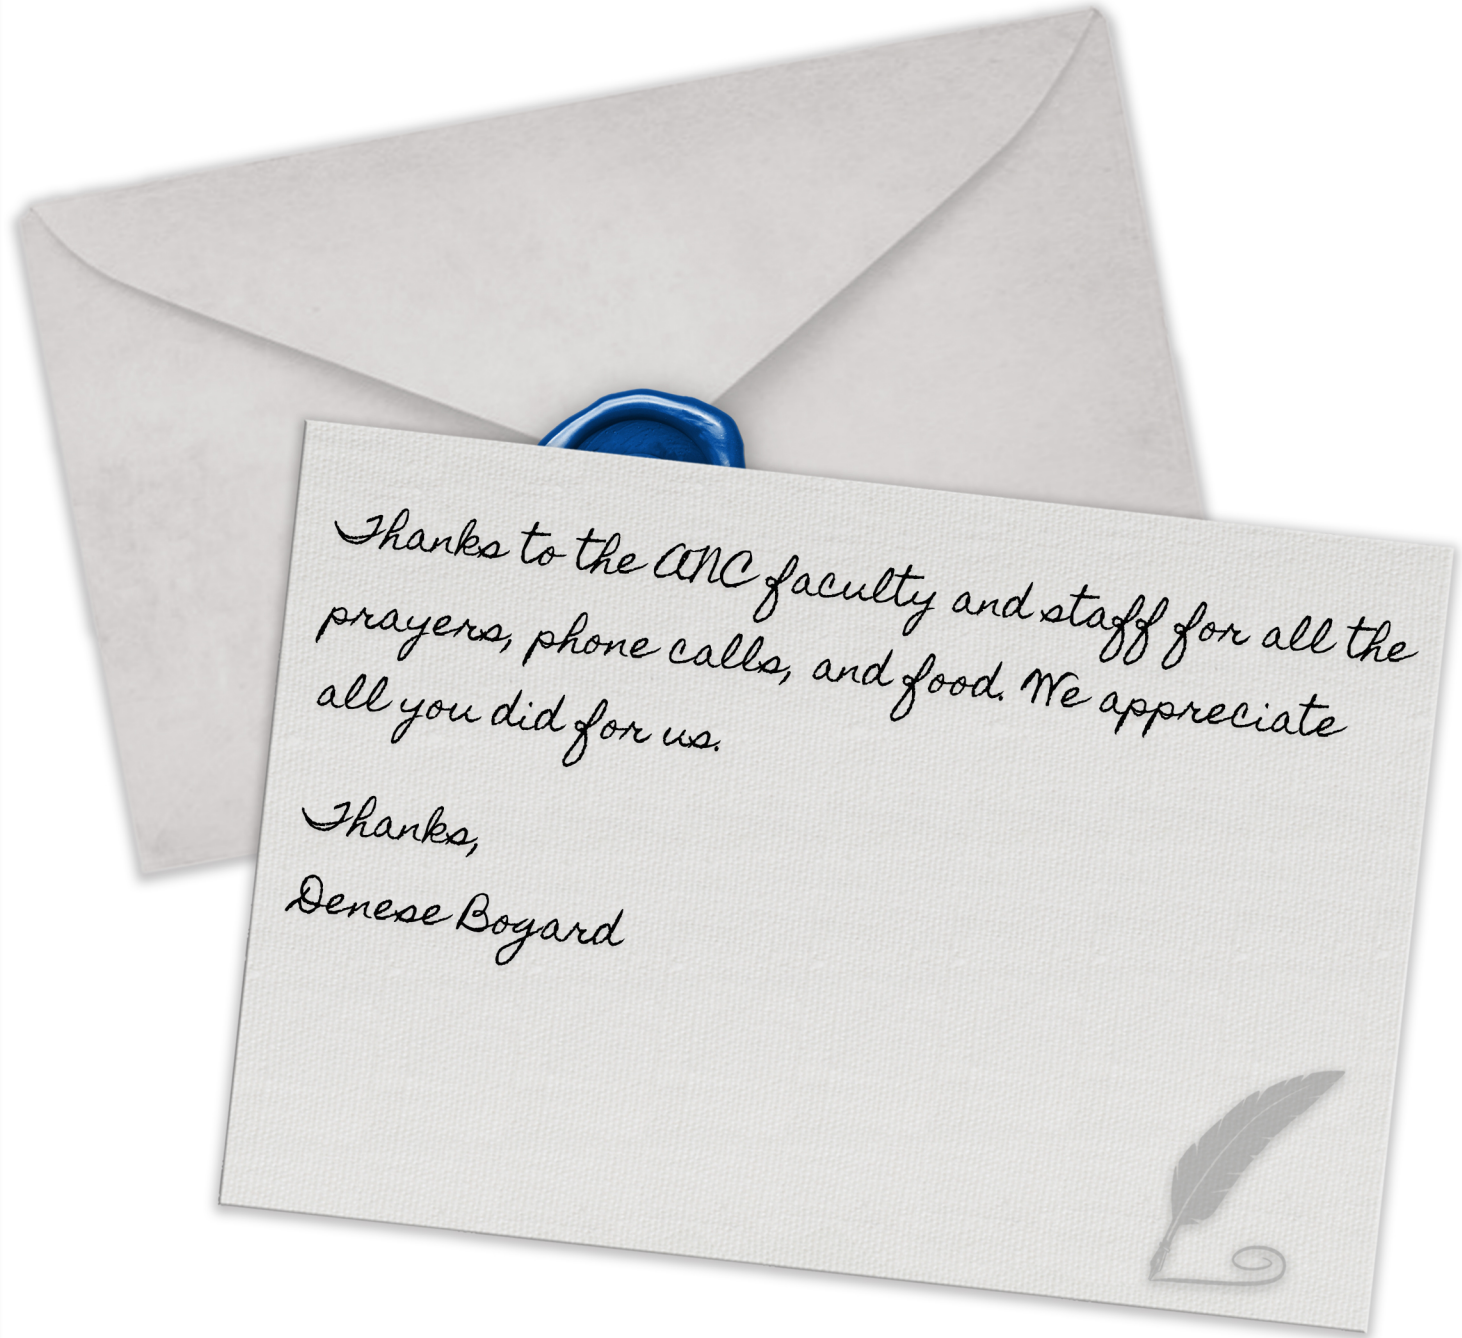 Thanks to the ANC faculty and staff for all the
prayers, phone calls, and food. We appreciate
all you did for us.
Thanks,
Denese Bogard